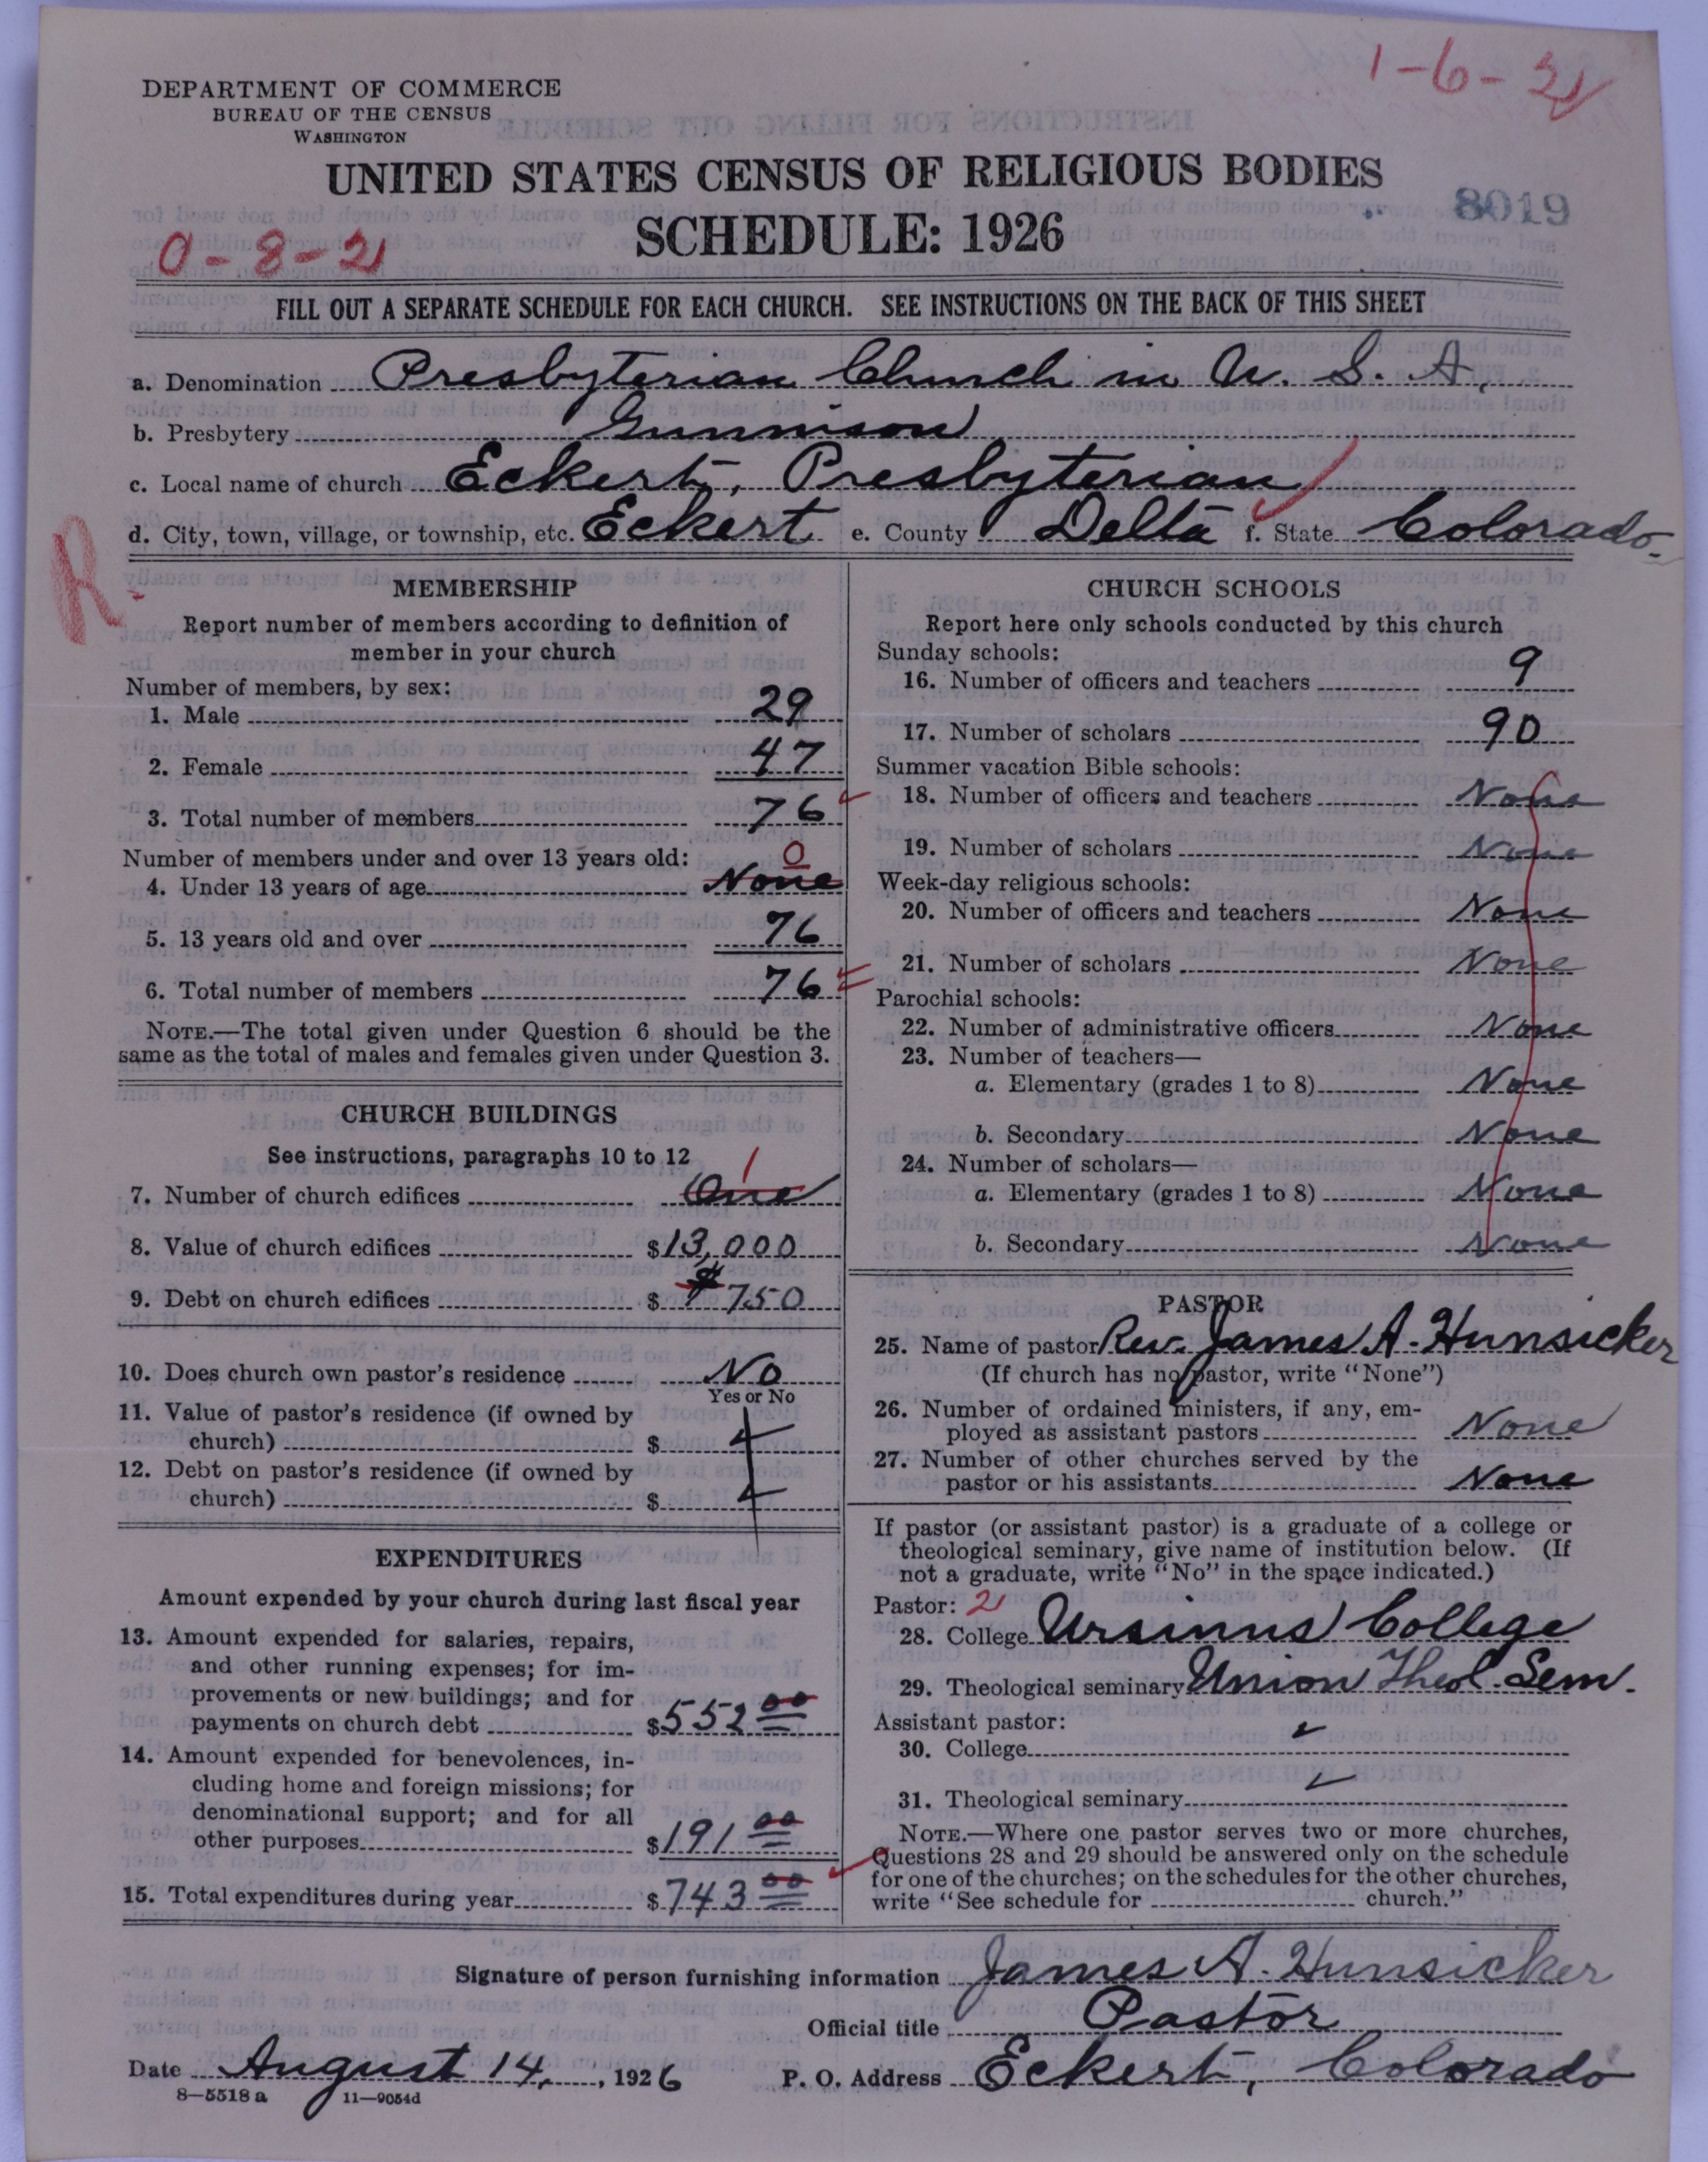 1-6-2
DEPARTMENT OF COMMERCE
BUREAU OF THE CENSUS
WASHINGTON
UNITED STATES CENSUS OF RELIGIOUS BODIES
SCHEDULE: 1926
8019
0-8-2
FILL OUT A SEPARATE SCHEDULE FOR EACH CHURCH. SEE INSTRUCTIONS ON THE BACK OF THIS SHEET
a. Denomination Presbyterian Church in U. S. A.
b. Presbytery Gunnison
c. Local name of church Eckert, Presbyterian
d. City, town, village, or township, etc. Eckert e. County Delta f. State Colorado.
R
MEMBERSHIP
Report number of members according to definition of
member in your church
Number of members, by sex:
1. Male 29
2. Female 47
3. Total number of members 76
Number of members under and over 13 years old:
0
4. Under 13 years of age None
5. 13 years old and over 76
6. Total number of members 76
NOTE.—The total given under Question 6 should be the
same as the total of males and females given under Question 3.
CHURCH BUILDINGS
See instructions, paragraphs 10 to 12
1
7. Number of church edifices One
8. Value of church edifices $13,000
9. Debt on church edifices $ $750
10. Does church own pastor's residence No
Yes or No
11. Value of pastor's residence (if owned by
church) $
12. Debt on pastor's residence (if owned by
church) $
EXPENDITURES
Amount expended by your church during last fiscal year
13. Amount expended for salaries, repairs,
and other running expenses; for im-
provements or new buildings; and for
payments on church debt $552 00
14. Amount expended for benevolences, in-
cluding home and foreign missions; for
denominational support; and for all
other purposes $191 00
15. Total expenditures during year $743 00
CHURCH SCHOOLS
Report here only schools conducted by this church
Sunday schools:
16. Number of officers and teachers 9
17. Number of scholars 90
Summer vacation Bible schools:
18. Number of officers and teachers None
19. Number of scholars None
Week-day religious schools:
20. Number of officers and teachers None
21. Number of scholars None
Parochial schools:
22. Number of administrative officers None
23. Number of teachers—
a. Elementary (grades 1 to 8) None
b. Secondary None
24. Number of scholars—
a. Elementary (grades 1 to 8) None
b. Secondary None
PASTOR
25. Name of pastor Rev. James A. Hunsicker
(If church has no pastor, write "None")
26. Number of ordained ministers, if any, em-
ployed as assistant pastors None
27. Number of other churches served by the
pastor or his assistants None
If pastor (or assistant pastor) is a graduate of a college or
theological seminary, give name of institution below. (If
not a graduate, write "No" in the space indicated.)
Pastor: 2
28. College Ursinus College
29. Theological seminary Union Theol. Sem.
Assistant pastor:
30. College
31. Theological seminary
NOTE.—Where one pastor serves two or more churches,
Questions 28 and 29 should be answered only on the schedule
for one of the churches; on the schedules for the other churches,
write "See schedule for church."
Signature of person furnishing information James A. Hunsicker
Official title Pastor
Date August 14, 1926 P. O. Address Eckert, Colorado
8—5518 a 11—9054d